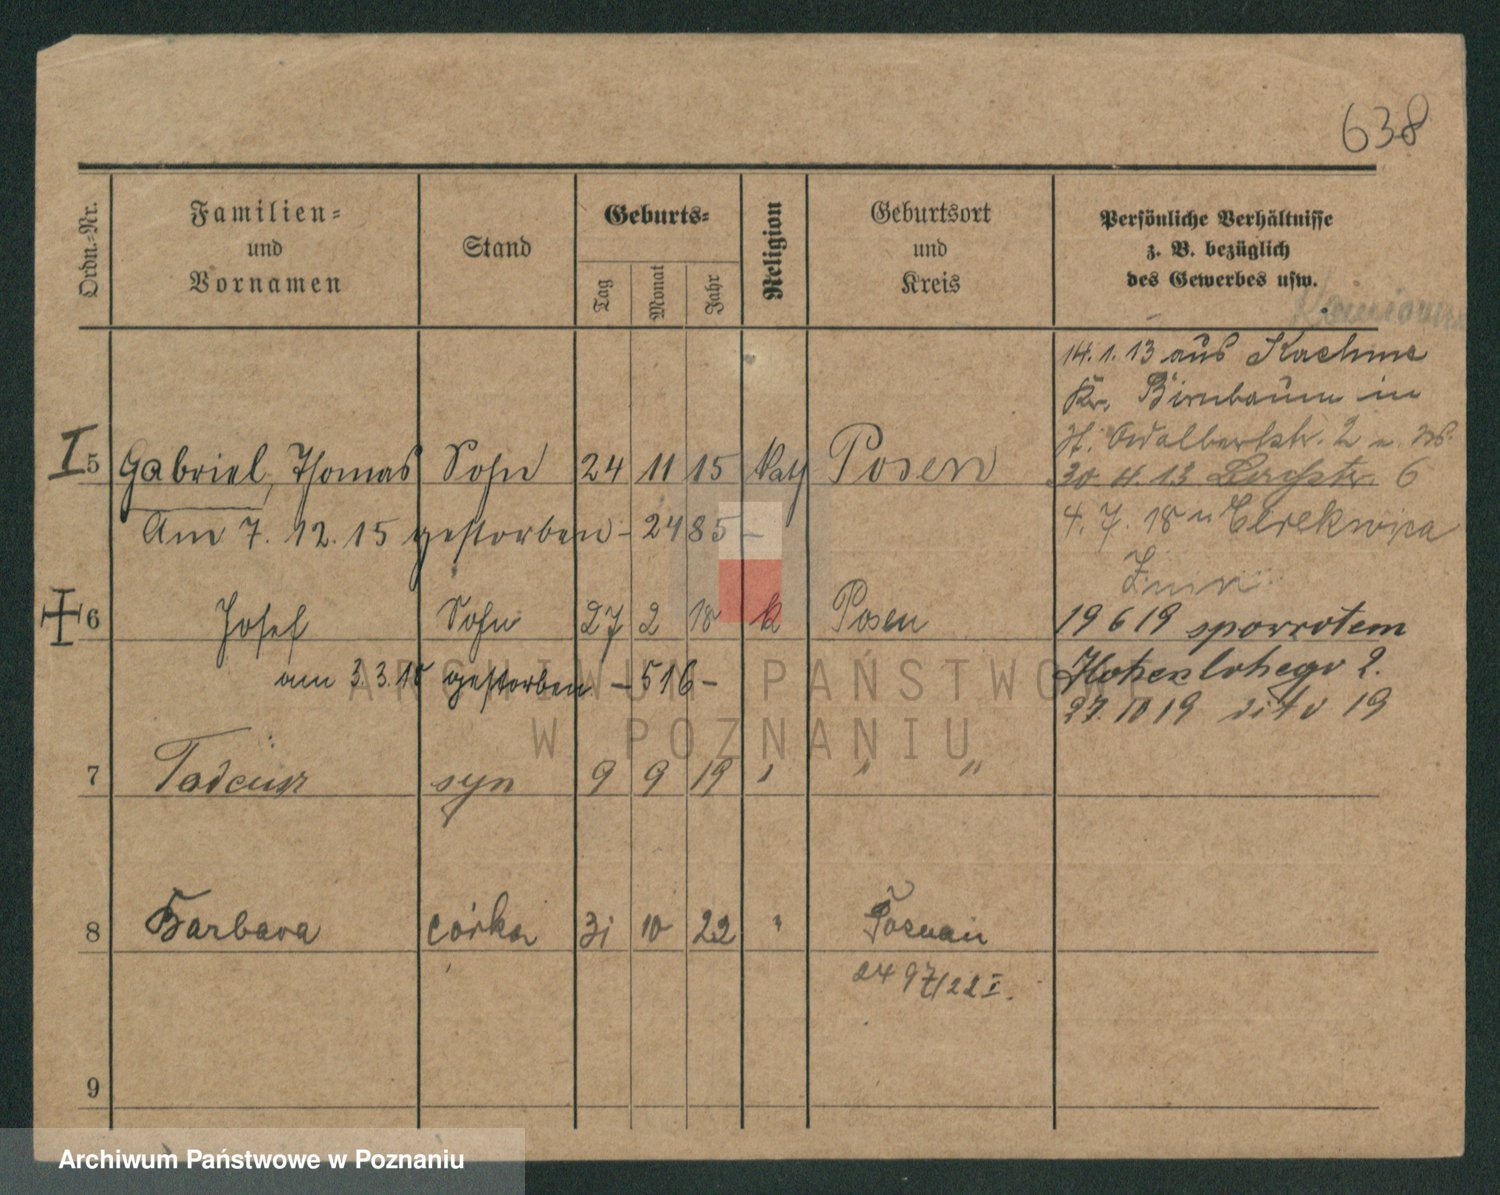 638
Ordn.-Nr.
Familien-
und
Vornamen
Stand
Geburts-
Tag
Monat
Jahr
Religion
Geburtsort
und
Kreis
Persönliche Verhältnisse
z. B. bezüglich
des Gewerbes usw.
14. 1. 13 aus Kaehme
Kr. Birnbaum in
St. Adalbertstr. 2
30 4. 13 6
4. 7. 18 n Cerekwica
Znin
19 6 19 spowrotem
Hohenlohego 2.
27. 10 19 dito 19
I 5 Gabriel, Thomas Sohn 24 11 15 kath Posen
Am 7. 12. 15 gestorben - 2485 -
6 Josef Sohn 27 2 18 k Posen
am 3. 3. 18 gestorben - 516 -
7 Tadeusz syn 9 9 19 " " "
8 Barbara córka 31 10 22 " Poznań
2497/22 I.
9
ARCHIWUM PAŃSTWOWE
W POZNANIU
Archiwum Państwowe w Poznaniu